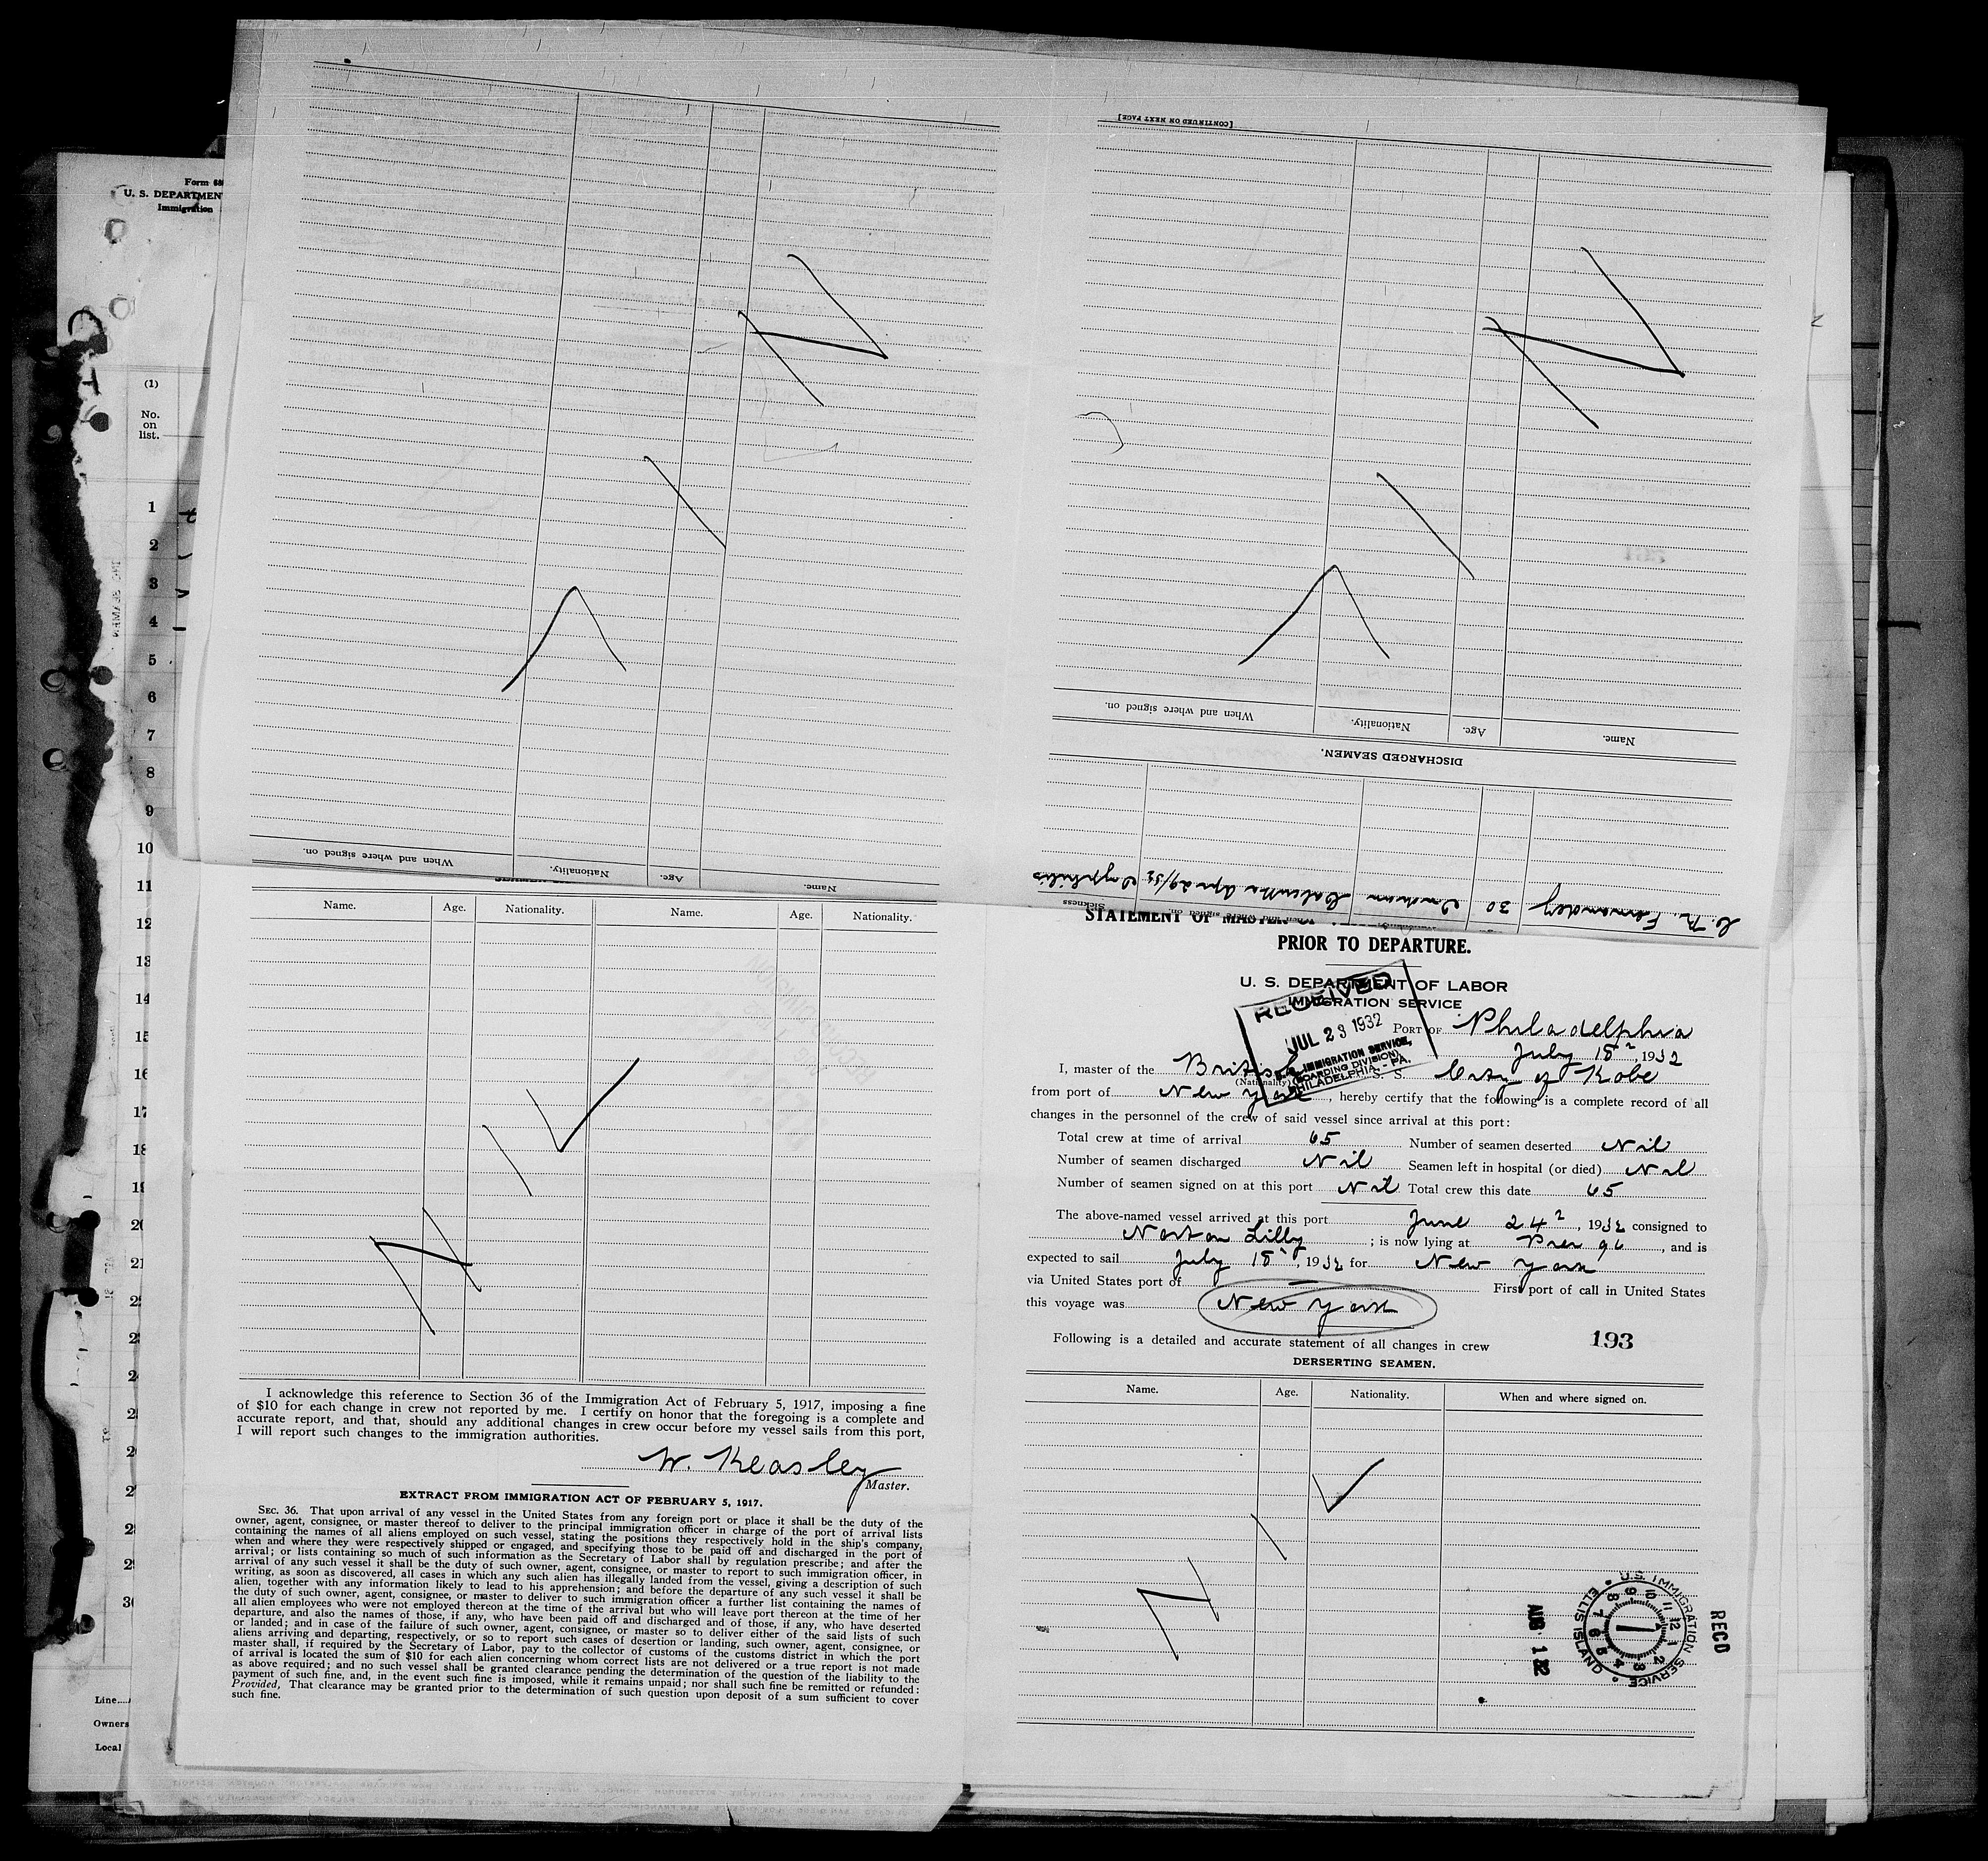 Form 68
U. S. DEPARTMEN
Immigration
(1)
No.
on
list.
1
2
3
4
5
6
7
8
9
10
11
12
13
14
15
16
17
18
19
20
21
Line
Owners
Local
[CONTINUED ON NEXT PAGE]
When and where signed on. Nationality. Age. Name.
DISCHARGED SEAMEN.
Name. Age. Nationality. When and where signed on.
Sickness
C. N. Fernandez 30 Indian Calcutta Apr 29/32 Syphilis
Name. Age. Nationality. When and where signed on.
Name. Age. Nationality. Name. Age. Nationality.
NIL
I acknowledge this reference to Section 36 of the Immigration Act of February 5, 1917, imposing a fine
of $10 for each change in crew not reported by me. I certify on honor that the foregoing is a complete and
accurate report, and that, should any additional changes in crew occur before my vessel sails from this port,
I will report such changes to the immigration authorities.
W. Keasley
Master.
EXTRACT FROM IMMIGRATION ACT OF FEBRUARY 5, 1917.
SEC. 36. That upon arrival of any vessel in the United States from any foreign port or place it shall be the duty of the
owner, agent, consignee, or master thereof to deliver to the principal immigration officer in charge of the port of arrival lists
containing the names of all aliens employed on such vessel, stating the positions they respectively hold in the ship's company,
when and where they were respectively shipped or engaged, and specifying those to be paid off and discharged in the port of
arrival; or lists containing so much of such information as the Secretary of Labor shall by regulation prescribe; and after the
arrival of any such vessel it shall be the duty of such owner, agent, consignee, or master to report to such immigration officer, in
writing, as soon as discovered, all cases in which any such alien has illegally landed from the vessel, giving a description of such
alien, together with any information likely to lead to his apprehension; and before the departure of any such vessel it shall be
the duty of such owner, agent, consignee, or master to deliver to such immigration officer a further list containing the names of
all alien employees who were not employed thereon at the time of the arrival but who will leave port thereon at the time of her
departure, and also the names of those, if any, who have been paid off and discharged and of those, if any, who have deserted
or landed; and in case of the failure of such owner, agent, consignee, or master so to deliver either of the said lists of such
aliens arriving and departing, respectively, or so to report such cases of desertion or landing, such owner, agent, consignee, or
master shall, if required by the Secretary of Labor, pay to the collector of customs of the customs district in which the port
of arrival is located the sum of $10 for each alien concerning whom correct lists are not delivered or a true report is not made
as above required; and no such vessel shall be granted clearance pending the determination of the question of the liability to the
payment of such fine, and, in the event such fine is imposed, while it remains unpaid; nor shall such fine be remitted or refunded:
Provided, That clearance may be granted prior to the determination of such question upon deposit of a sum sufficient to cover
such fine.
STATEMENT OF MASTER
PRIOR TO DEPARTURE.
U. S. DEPARTMENT OF LABOR
IMMIGRATION SERVICE
RECEIVED
JUL 23 1932
U.S. IMMIGRATION SERVICE,
(BOARDING DIVISION)
PHILADELPHIA - PA.
PORT OF Philadelphia
July 18, 1932
I, master of the British S. S. City of Kobe
(Nationality)
from port of New York, hereby certify that the following is a complete record of all
changes in the personnel of the crew of said vessel since arrival at this port:
Total crew at time of arrival 65 Number of seamen deserted Nil
Number of seamen discharged Nil Seamen left in hospital (or died) Nil
Number of seamen signed on at this port Nil Total crew this date 65
The above-named vessel arrived at this port June 24, 1932 consigned to
Norton Lilly; is now lying at Pier 96, and is
expected to sail July 18, 1932 for New York
via United States port of — First port of call in United States
this voyage was New York
Following is a detailed and accurate statement of all changes in crew
193
DERSERTING SEAMEN.
Name. Age. Nationality. When and where signed on.
NIL
U.S. IMMIGRATION SERVICE • ELLIS ISLAND •
RECD
AUG 1